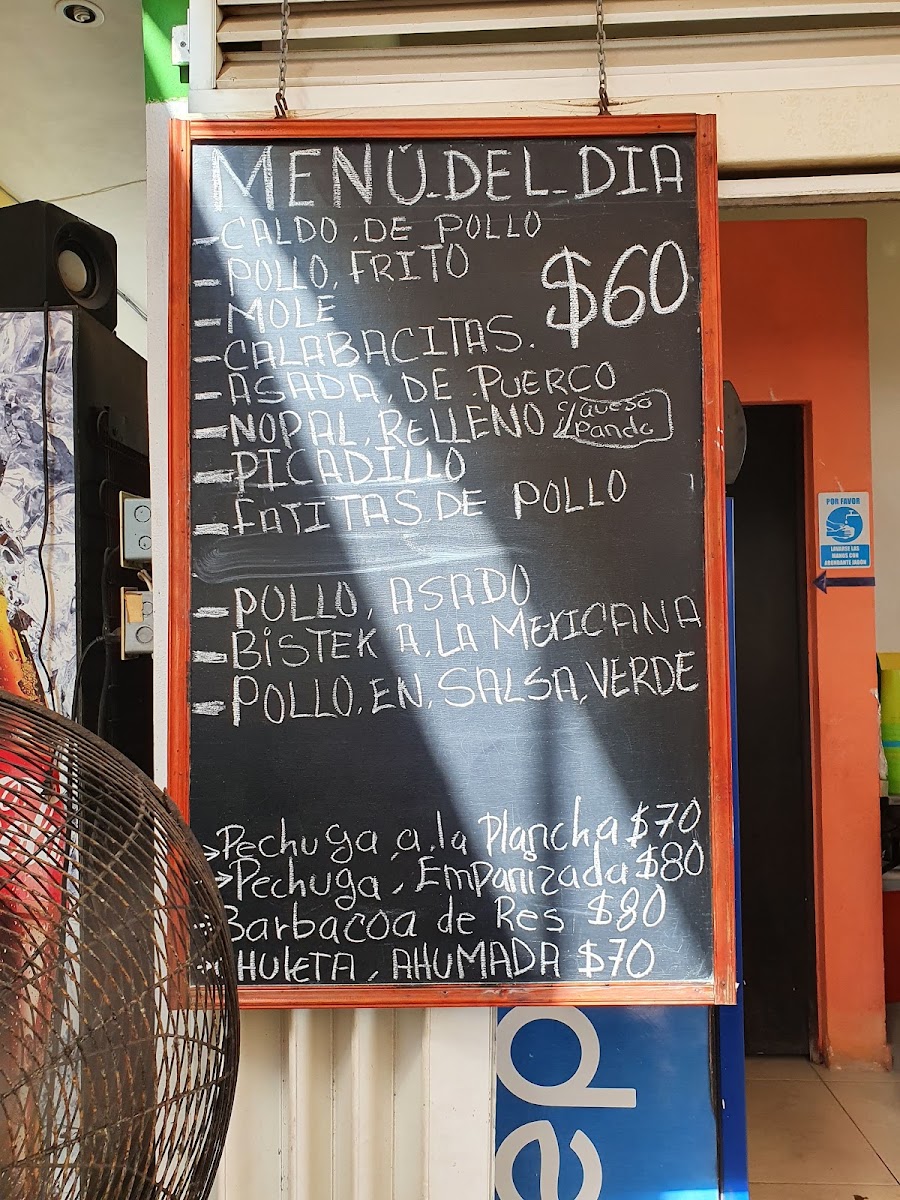 MENÚ-DEL-DIA
-CALDO.DE POLLO
-POLLO, FRITO
$60
-MOLE
-CALABACITAS.
-ASADA, DE PUERCO
-NOPAL, RELLENO c/queso Panela
-PICADILLO
-FAJITAS DE POLLO
-POLLO, ASADO
-BISTEK A, LA MEXICANA
-POLLO, EN, SALSA, VERDE
→Pechuga, a, la Plancha $70
→Pechuga, Empanizada $80
Barbacoa de Res $80
CHULETA, AHUMADA $70
POR FAVOR
LAVARSE LAS
MANOS CON
ABUNDANTE JABÓN
ep